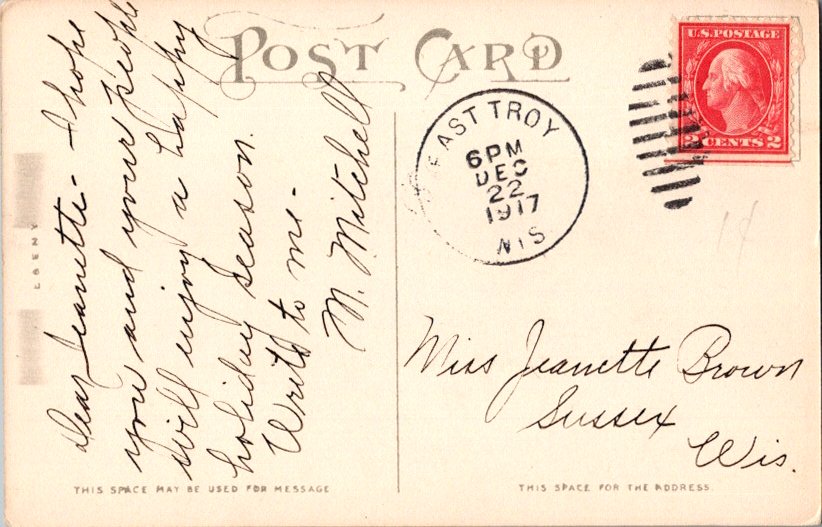 POST CARD
Dear Jeanette - I hope
you and your people
will enjoy a happy
holiday season.
Write to me -
M. Mitchell
EAST TROY
6PM
DEC
22
1917
WIS
U.S. POSTAGE
2 CENTS 2
Miss Jeanette Brown
Sussex
Wis.
THIS SPACE MAY BE USED FOR MESSAGE
THIS SPACE FOR THE ADDRESS.